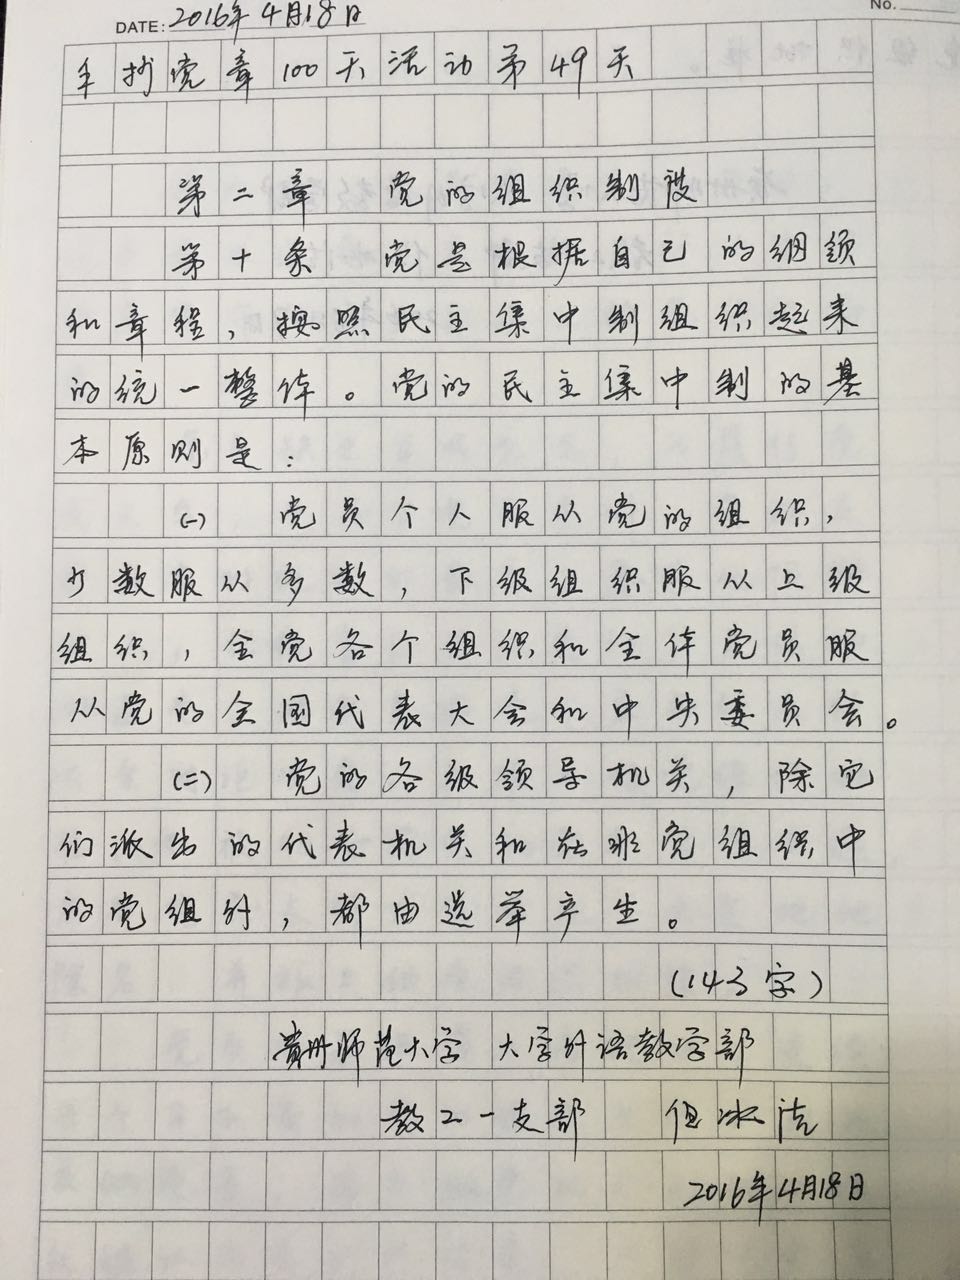 No.
DATE: 2016年4月18日
手抄党章100天活动第49天
第二章 党的组织制度
第十条 党是根据自己的纲领
和章程，按照民主集中制组织起来
的统一整体。党的民主集中制的基
本原则是：
(一) 党员个人服从党的组织，
少数服从多数，下级组织服从上级
组织，全党各个组织和全体党员服
从党的全国代表大会和中央委员会。
(二) 党的各级领导机关，除它
们派出的代表机关和在非党组织中
的党组外，都由选举产生。
(143字)
贵州师范大学 大学外语教学部
教工一支部 但冰洁
2016年4月18日